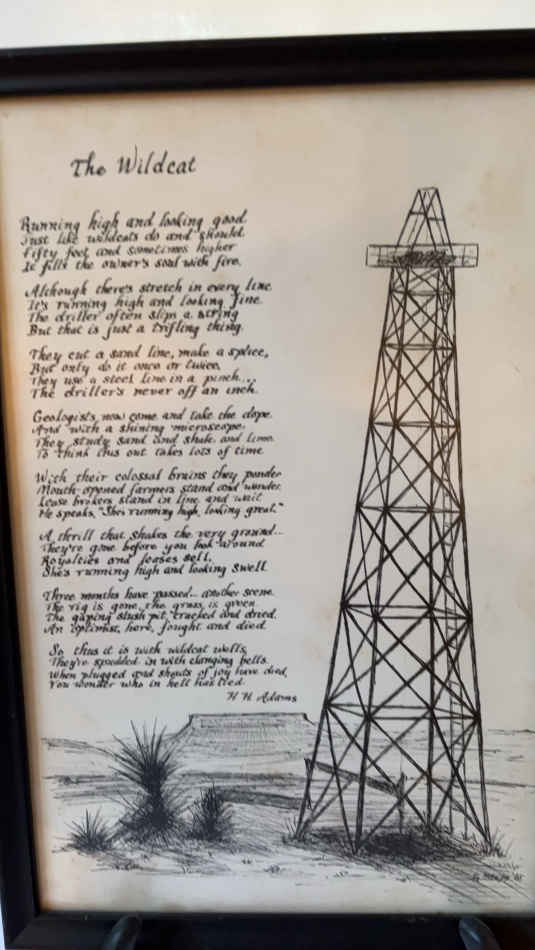 The Wildcat
Running high and looking good
Just like wildcats do and should.
Fifty feet and sometimes higher
It fills the owner's soul with fire.
Although there's stretch in every line
It's running high and looking fine.
The driller often slips a string
But that is just a trifling thing.
They cut a sand line, make a splice,
But only do it once or twice,
They use a steel line in a pinch...
The driller's never off an inch.
Geologists now come and take the dope
And with a shining microscope
They study sand and shale and lime.
To think this out takes lots of time
With their colossal brains they ponder
Mouth-opened farmers stand and wonder.
Lease brokers stand in line and wait
He speaks, "She's running high, looking great."
A thrill that shakes the very ground...
They're gone before you look around
Royalties and leases sell,
She's running high and looking swell.
Three months have passed... another scene.
The rig is gone, the grass is green.
The gaping slush pit, cracked and dried.
An optimist, here, fought and died.
So thus it is with wildcat wells,
They're spudded in with clanging bells.
When plugged and shouts of joy have died,
You wonder who in hell has lied.
H H Adams